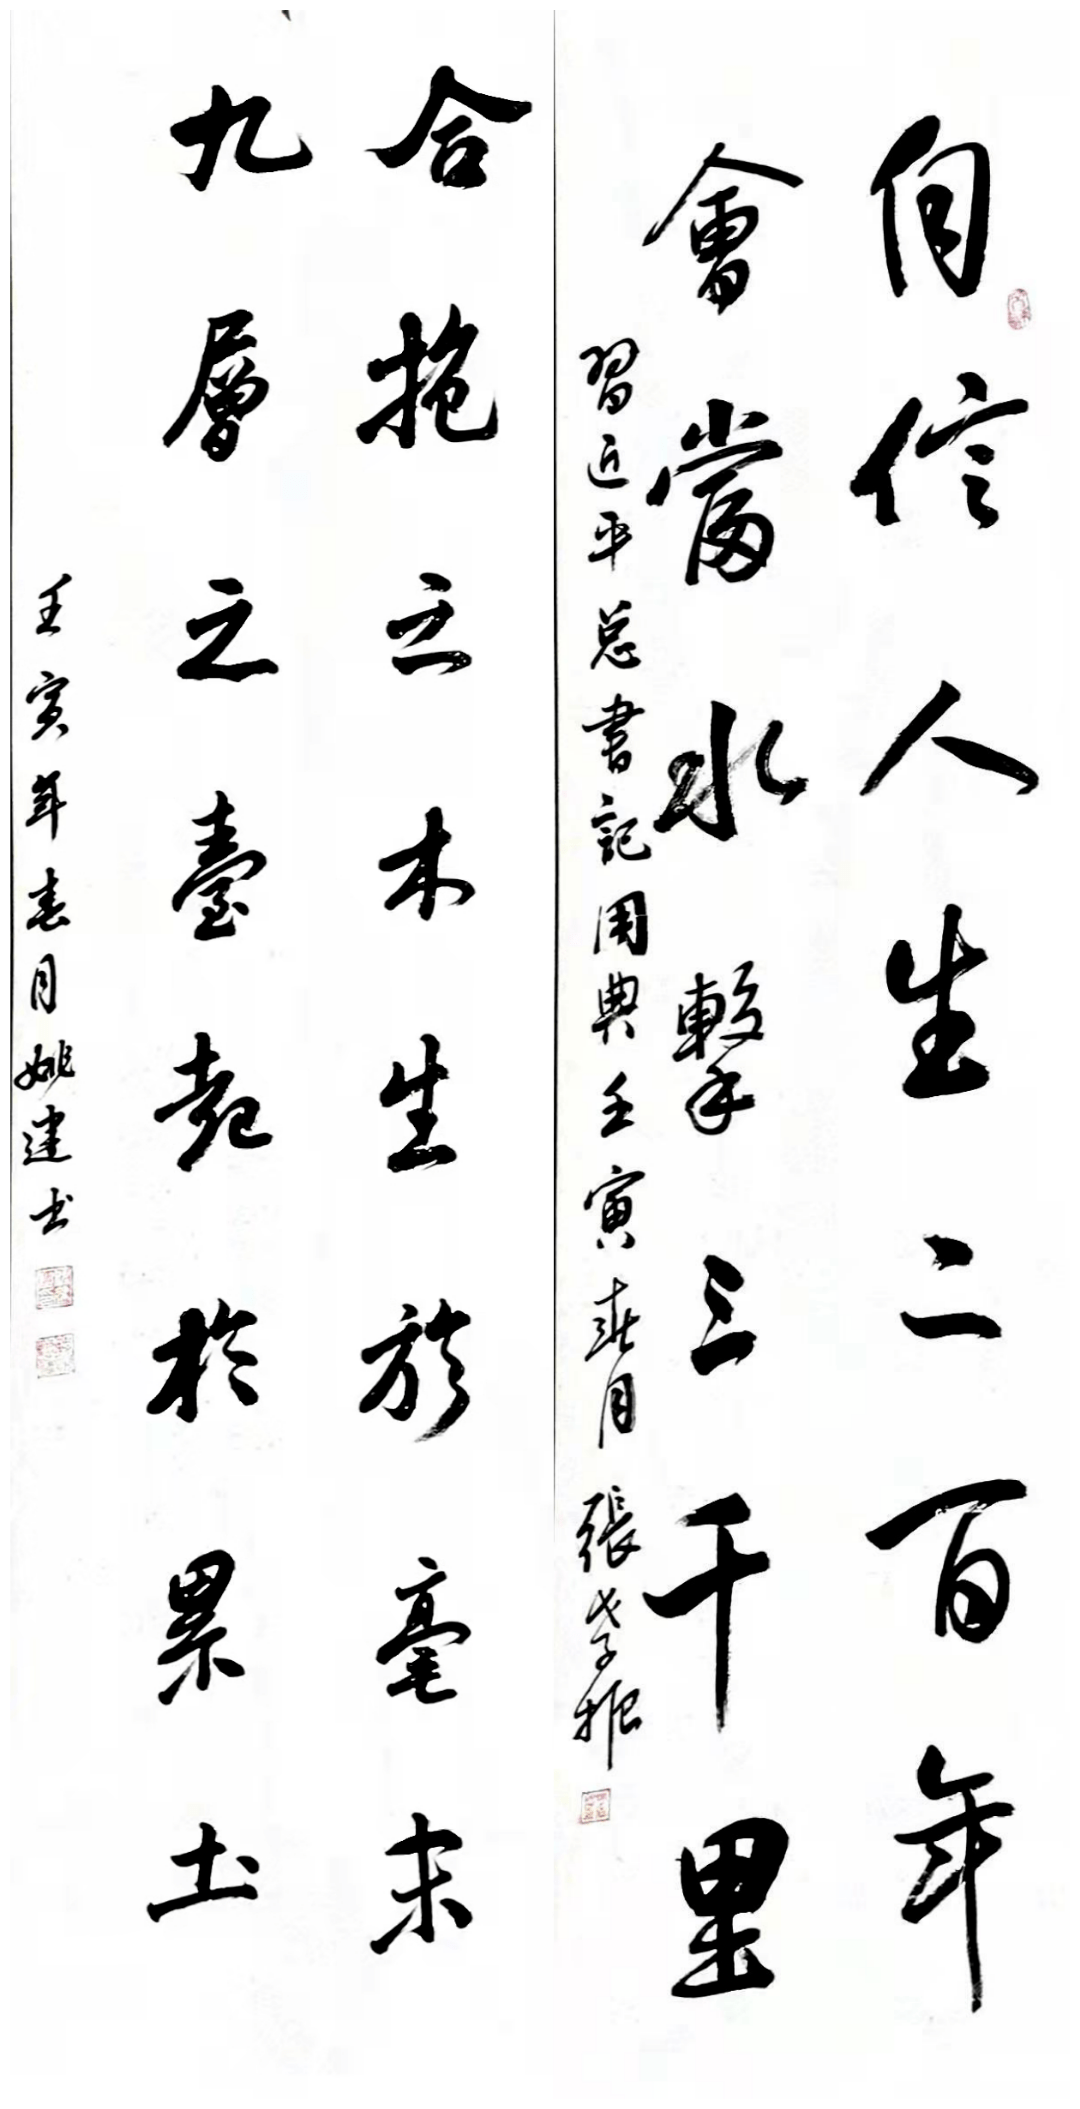 自信人生二百年
會當水擊三千里
習近平总書記用典壬寅春月張孝振
合抱之木生於毫末
九層之臺起於累土
壬寅年春月姚建书